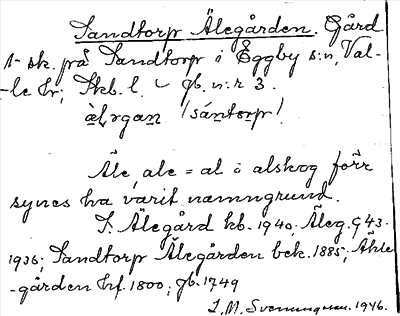 Sandtorp Älegården. Gård
1- sk. på Sandtorp i Eggby s:n, Val-
-le hr; Skb. l. Jb. n:r 3.
àlrgan (sántorp)
Äle, ale = al o alskog förr
synes ha varit namngrund.
S. Älegård kb. 1940. Äleg. G43.
1936; Sandtorp Älegården bek. 1885; Åhle
-gården hf. 1800; Jb. 1749
L. M. Svenungsson. 1946.